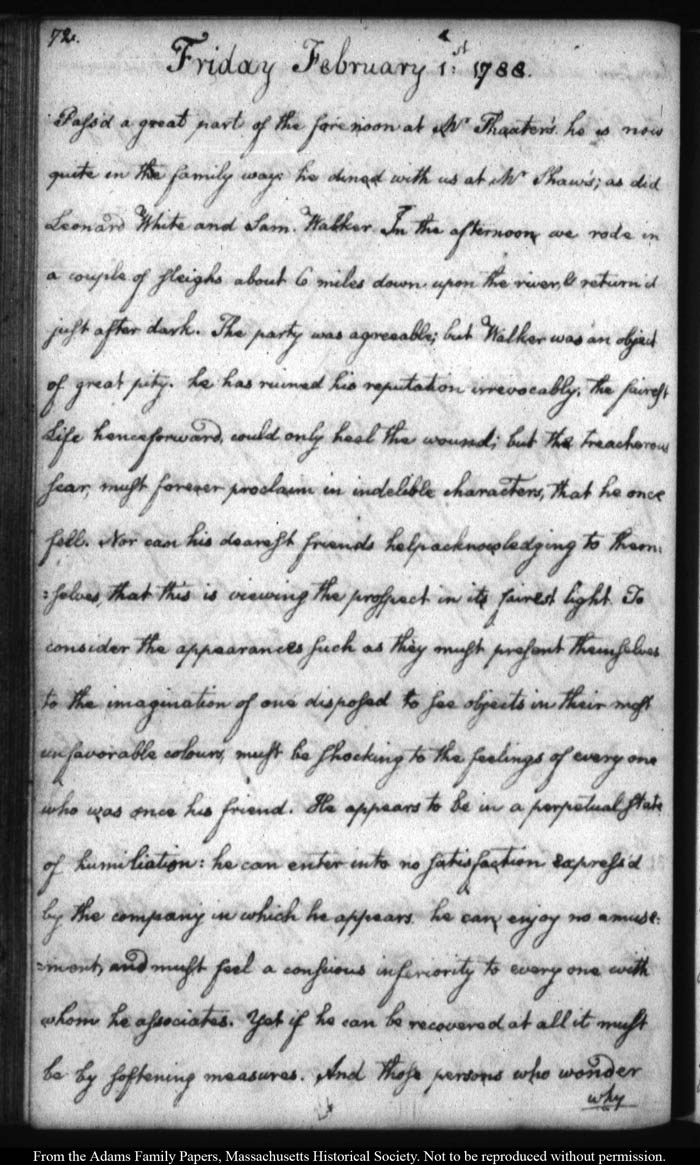 72.
Friday February 1.st 1788.
Pass'd a great part of the forenoon at Mr Thaxter's. he is now
quite in the family way: he dined with us at Mr Shaw's; as did
Leonard White and Sam. Walker. In the afternoon we rode in
a couple of sleighs about 6 miles down upon the river, & return'd
just after dark. The party was agreeable; but Walker was an object
of great pity. he has ruined his reputation irrevocably, the fairest
Life henceforward, could only heal the wound; but the treacherous
scar, must forever proclaim in indelible characters, that he once
fell. Nor can his dearest friends help acknowledging to them:
=selves, that this is viewing the prospect in its fairest light. To
consider the appearances such as they must present themselves
to the imagination of one disposed to see objects in their most
unfavorable colours, must be shocking to the feelings of every one
who was once his friend. He appears to be in a perpetual state
of humiliation: he can enter into no satisfaction express'd
by the company in which he appears. he can enjoy no amuse:
=ment, and must feel a conscious inferiority to every one with
whom he associates. Yet if he can be recovered at all it must
be by softening measures. And those persons who wonder
why
From the Adams Family Papers, Massachusetts Historical Society. Not to be reproduced without permission.